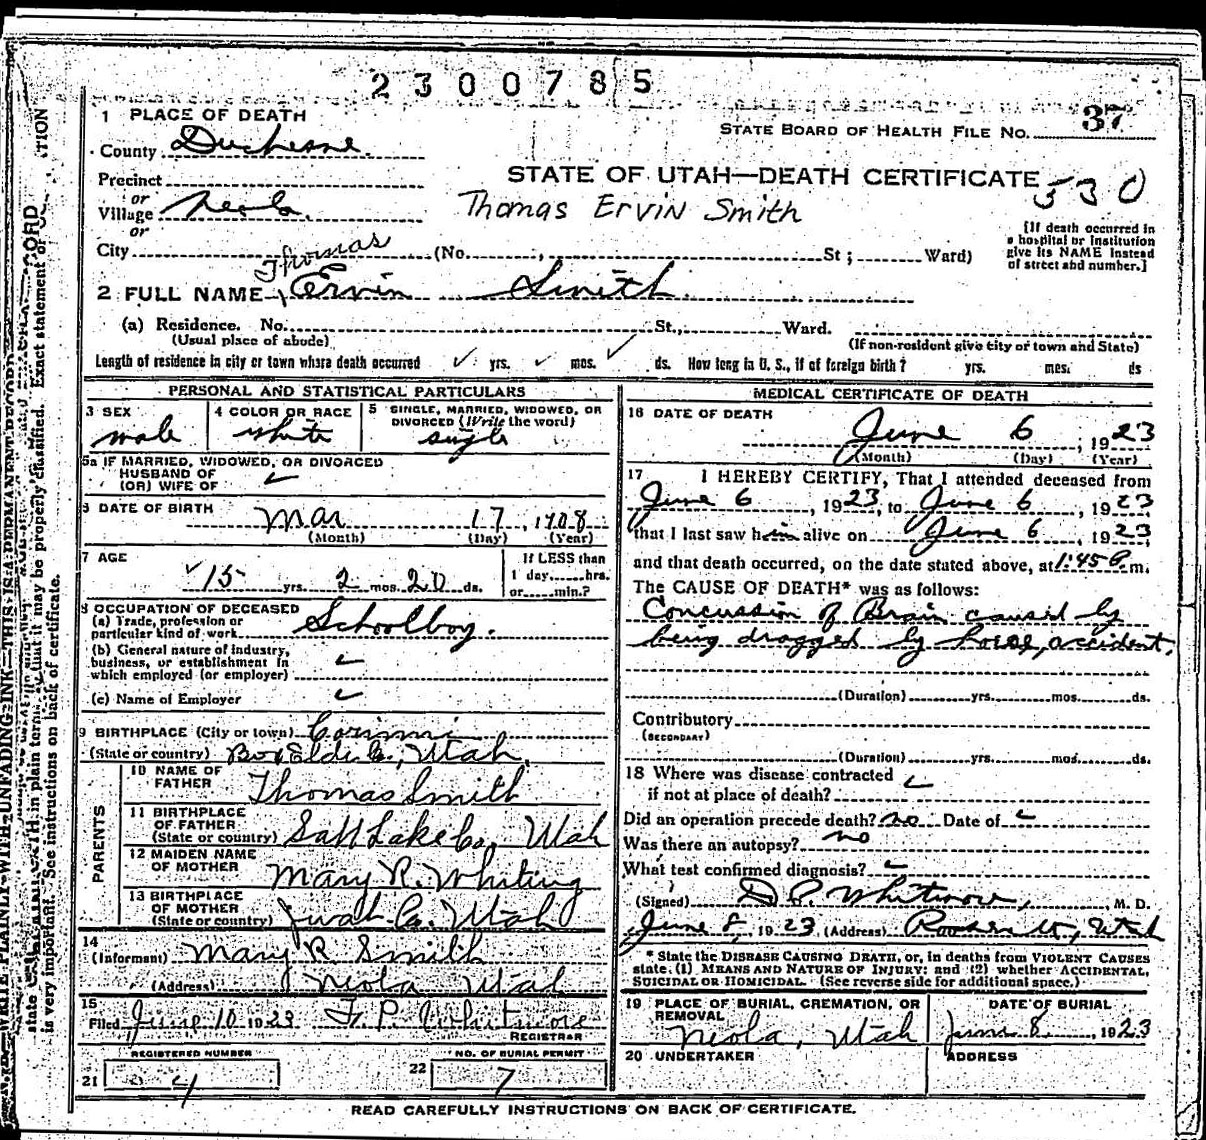 2300785
1 PLACE OF DEATH
STATE BOARD OF HEALTH FILE NO. 37
County Duchesne
STATE OF UTAH—DEATH CERTIFICATE 530
Precinct
or
Village Neola
Thomas Ervin Smith
or
City (No. , St; Ward)
[If death occurred in
a hospital or institution
give its NAME instead
of street and number.]
Thomas
2 FULL NAME Ervin Smith
(a) Residence. No. St., Ward.
(Usual place of abode) (If non-resident give city or town and State)
Length of residence in city or town where death occurred ✓ yrs. ✓ mos. ✓ ds. How long in U. S., if of foreign birth? yrs. mos. ds
PERSONAL AND STATISTICAL PARTICULARS
3 SEX
male
4 COLOR OR RACE
white
5 SINGLE, MARRIED, WIDOWED, OR
DIVORCED (Write the word)
single
5a IF MARRIED, WIDOWED, OR DIVORCED
HUSBAND OF
(OR) WIFE OF ✓
6 DATE OF BIRTH
Mar 17, 1908
(Month) (Day) (Year)
7 AGE
15 yrs. 2 mos. 20 ds.
If LESS than
1 day......hrs.
or......min.?
8 OCCUPATION OF DECEASED
(a) Trade, profession or
particular kind of work Schoolboy.
(b) General nature of industry,
business, or establishment in
which employed (or employer) ✓
(c) Name of Employer ✓
9 BIRTHPLACE (City or town) Corinne
(State or country) Box Elder Co., Utah,
PARENTS
10 NAME OF
FATHER Thomas Smith
11 BIRTHPLACE
OF FATHER
(State or country) Salt Lake Co, Utah
12 MAIDEN NAME
OF MOTHER Mary R. Whiting
13 BIRTHPLACE
OF MOTHER
(State or country) Co. Utah
14
(Informant) Mary R Smith
(Address) Neola Utah
15
Filed June 10 1923 F. P. Whitmore
REGISTRAR
REGISTERED NUMBER
21 4
NO. OF BURIAL PERMIT
22 7
MEDICAL CERTIFICATE OF DEATH
16 DATE OF DEATH
June 6, 1923
(Month) (Day) (Year)
17 I HEREBY CERTIFY, That I attended deceased from
June 6, 1923, to June 6, 1923
that I last saw him alive on June 6, 1923
and that death occurred, on the date stated above, at 1:45 P.m.
The CAUSE OF DEATH* was as follows:
Concussion of Brain caused by
being dragged by horse, accident.
(Duration) yrs. mos. ds.
Contributory
(SECONDARY)
(Duration) yrs. mos. ds.
18 Where was disease contracted
if not at place of death? ✓
Did an operation precede death? no Date of ✓
Was there an autopsy? no
What test confirmed diagnosis? ✓
(Signed) D P. Whitmore, M. D.
June 8, 1923 (Address) Roosevelt, Utah
* State the DISEASE CAUSING DEATH, or, in deaths from VIOLENT CAUSES
state (1) MEANS AND NATURE OF INJURY; and (2) whether ACCIDENTAL,
SUICIDAL OR HOMICIDAL. (See reverse side for additional space.)
19 PLACE OF BURIAL, CREMATION, OR
REMOVAL
Neola, Utah
DATE OF BURIAL
June 8, 1923
20 UNDERTAKER
ADDRESS
READ CAREFULLY INSTRUCTIONS ON BACK OF CERTIFICATE.
WRITE PLAINLY WITH UNFADING INK—THIS IS A PERMANENT RECORD
in plain terms, that it may be properly classified. Exact statement of
is very important. See instructions on back of certificate.